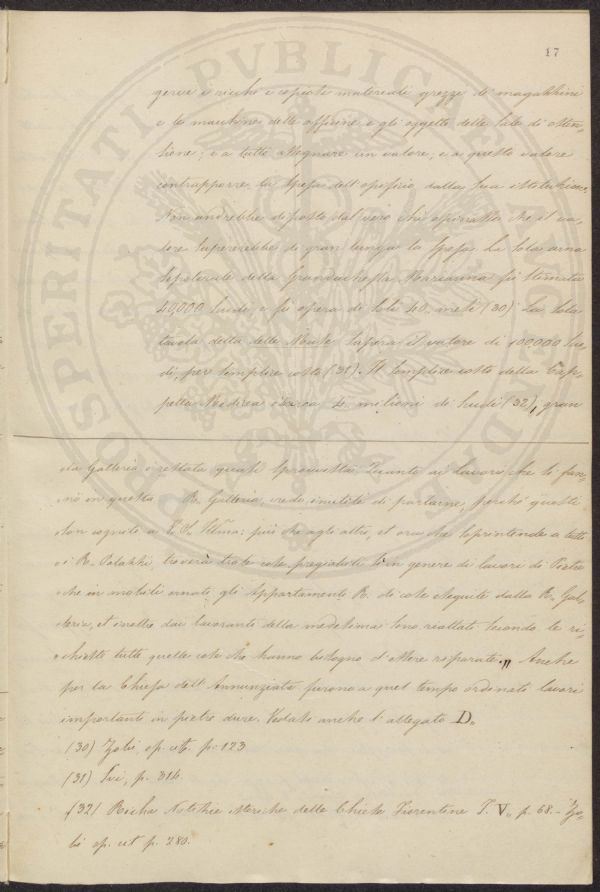 17
gervi i ricchi e copiosi materiali grezzi de' magazzini
e le macchine delle officine e gli oggetti delle Sale di osten-
sione; e a tutto assegnare un valore; e a questo valore
contrapporre la spesa dell'opificio dalla sua istituzione.
Non andrebbe discosto dal vero chi opinasse che il va-
lore supererebbe di gran lunga la spesa. La sola urna
sepolcrale della Granduchessa Marianna fu stimata
40,000 scudi e fu opera di soli 40 mesi (30) La sola
tavola detta delle Muse supera il valore di 100000 scu-
di, per semplice costo (31). Il semplice costo della Cap-
pella Medicea circa 4 milioni di scudi (32), gran
sta Galleria è restata quasi sprovvista. Quanto ai Lavori che si fan-
no in questa R. Galleria, credo inutile di parlarne, perché questi
son cogniti a V. S. Illma: più che agli altri, et ora che soprintende a tutti
i R. Palazzi, troverà tante cose pregiabili sì in genere di lavori di Pietre
che in mobili ornati gli Appartamenti R. di cose eseguite dalla R. Gal-
leria, et inoltre dai lavoranti della medesima sono riattati secondo le ri-
chieste tutte quelle cose che hanno bisogno d'essere risparate.„ Anche
per la Chiesa dell'Annunziata furono a quel tempo ordinati lavori
importanti in pietre dure. Vedasi anche l'allegato D.
(30) Zobi, op. cit. p. 123
(31) Ivi, p. 314.
(32) Richa Notizie storiche delle Chiese Fiorentine T. V. p. 68. – Zo-
bi op. cit p. 280.
PROSPERITATI PVBLICAE AVGENDAE